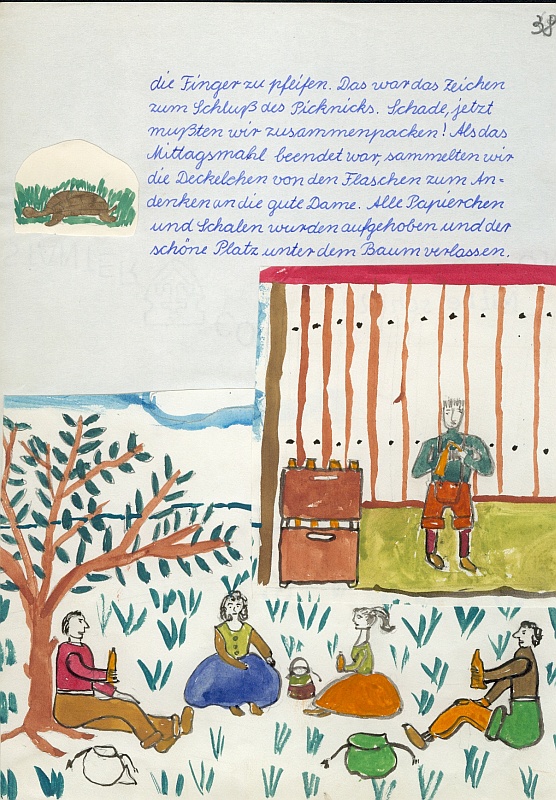 38
die Finger zu pfeifen. Das war das Zeichen
zum Schluß des Picknicks. Schade, jetzt
mußten wir zusammenpacken! Als das
Mittagsmahl beendet war, sammelten wir
die Deckelchen von den Flaschen zum An=
denken an die gute Dame. Alle Papierchen
und Schalen wurden aufgehoben und der
schöne Platz unter dem Baum verlassen.